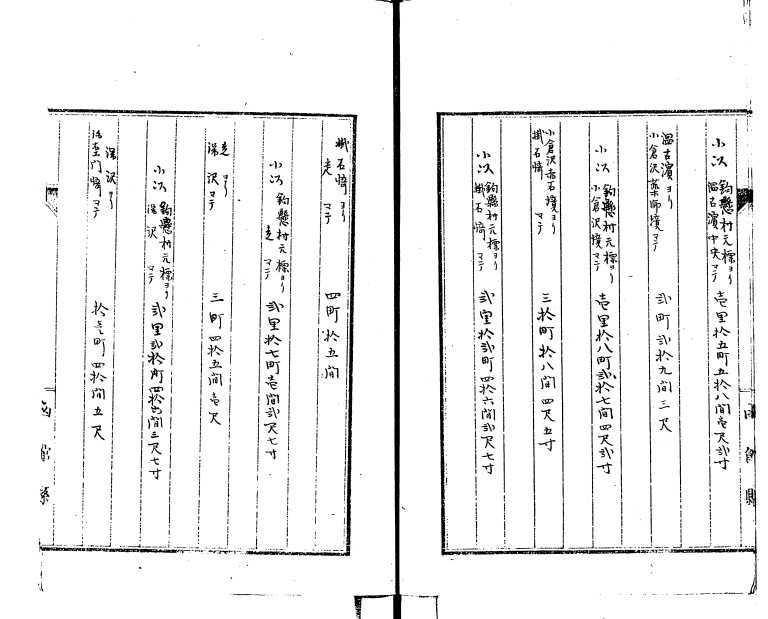 小以 鈎懸村元標ヨリ
温古濱中央マテ 壱里拾五町五拾八間壱尺弐寸
温古濱ヨリ
小倉沢薬師境マテ 弐町弐拾九間三尺
小以 鈎懸村元標ヨリ
小倉沢境マテ 壱里拾八町弐拾七間四尺弐寸
小倉沢赤石境ヨリ
掛石崎マテ 三拾町拾八間四尺五寸
小以 鈎懸村元標ヨリ
掛石崎マテ 弐里拾弐町四拾六間弐尺七寸
掛石崎ヨリ
走マテ 四町拾五間
小以 鈎懸村元標ヨリ
走マテ 弐里拾七町壱間弐尺七寸
走ヨリ
湯沢マテ 三町四拾五間壱尺
小以 鈎懸村元標ヨリ
湯沢マテ 弐里弐拾町四拾六間三尺七寸
湯沢ヨリ
門崎マテ 拾壱町四拾間五尺
函館縣
函館縣